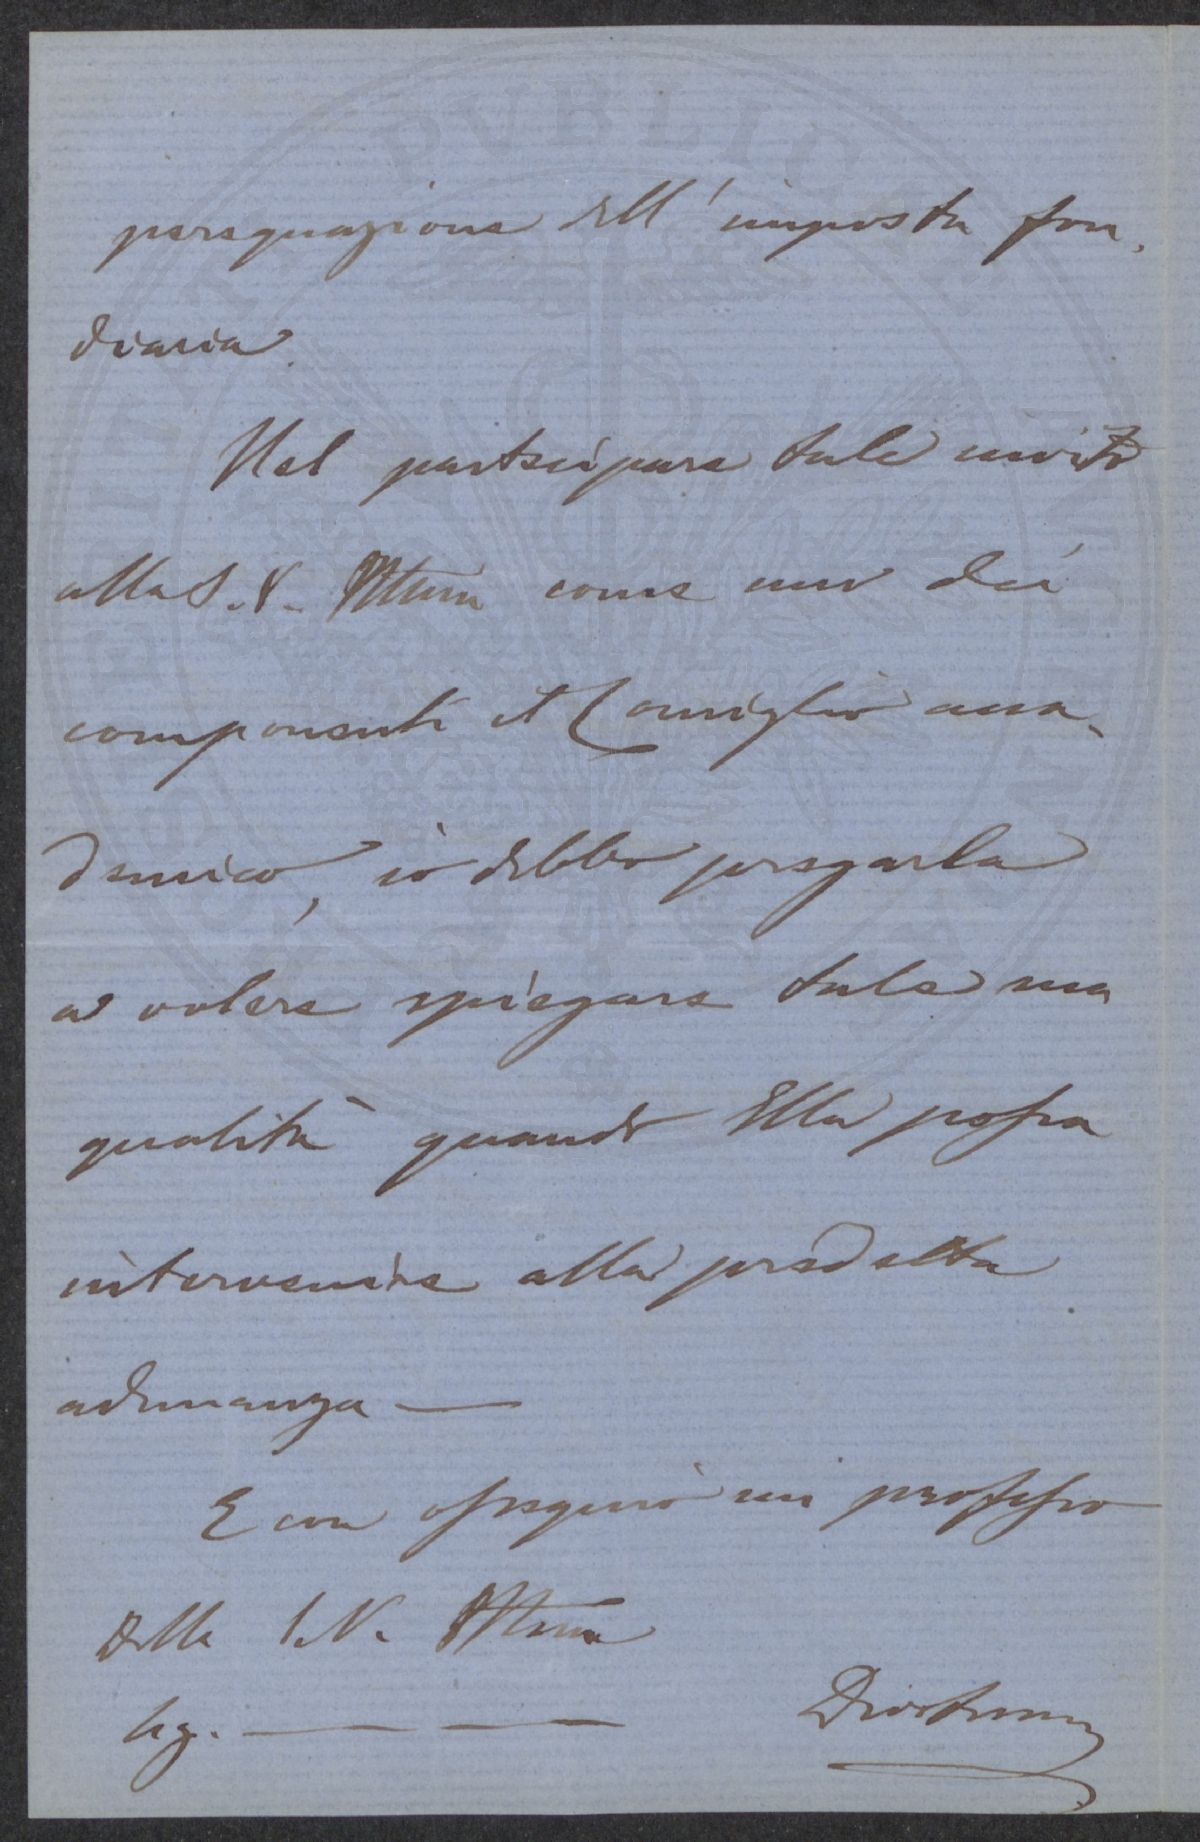 perequazione dell'imposta fon,
diaria.
Nel partecipare tale invito
alla S.V. Ill̃ma come uno dei
componenti il Consiglio acca,
demico, io debbo pregarla
a volere spiegare tale sua
qualità quando Ella possa
intervenire alla predetta
adunanza —
E con ossequio mi professo
Della S.V. Ill̃ma